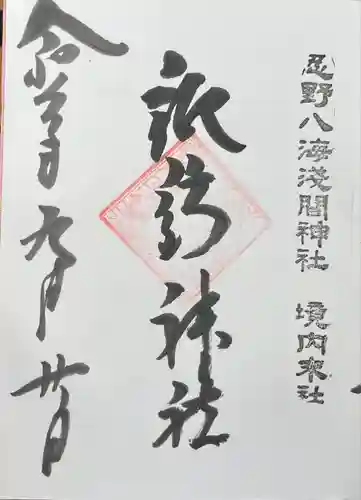 忍野八海淺間神社 境内末社
神社
令和 年 九月 廿日